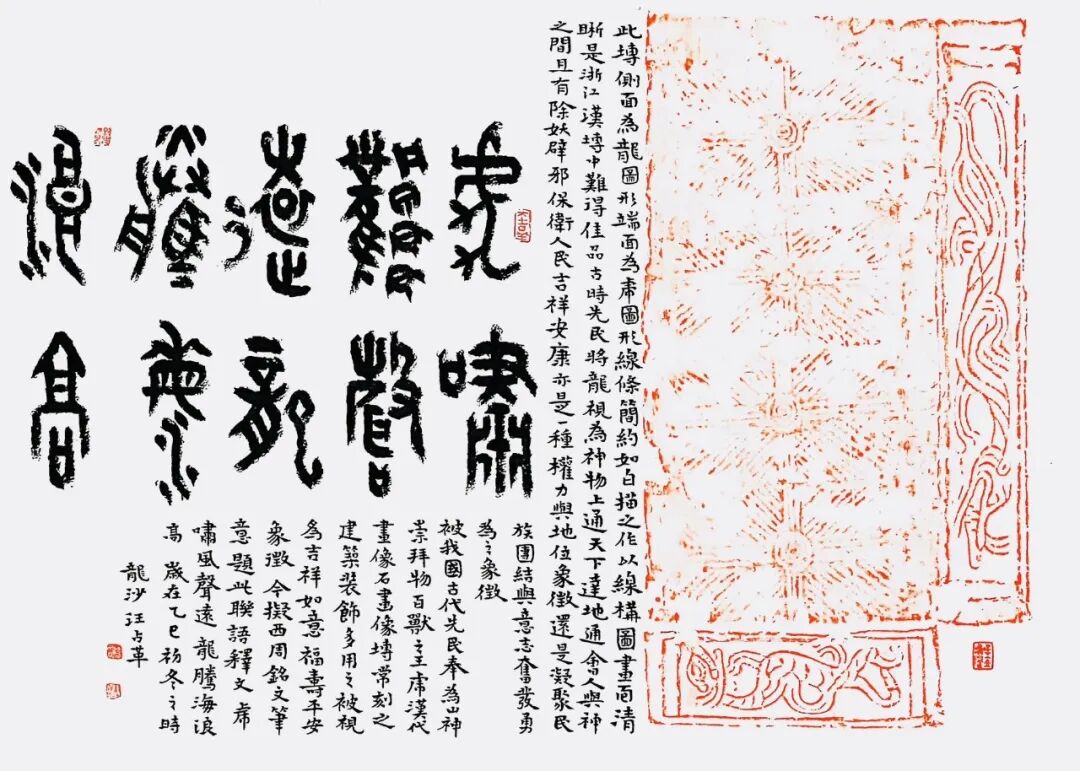 此塼側面為龍圖形端面為虎圖形線條簡約如白描之作以線構圖畫面清
晰是浙江漢塼中難得佳品古時先民將龍視為神物上通天下達地通會人與神
之間且有除妖辟邪保衛人民吉祥安康亦是一種權力與地位象徵還是凝聚民
虎嘯
風聲
遠龍
騰海
浪高
族團結與意志奮發勇
為之象徵
被我國古代先民奉為山神
崇拜物百獸之王虎漢代
畫像石畫像塼常刻之
建築裝飾多用之被視
為吉祥如意福壽平安
象徵今擬西周銘文筆
意題此聯語釋文虎
嘯風聲遠龍騰海浪
高歲在乙巳初冬之時
龍沙汪占革